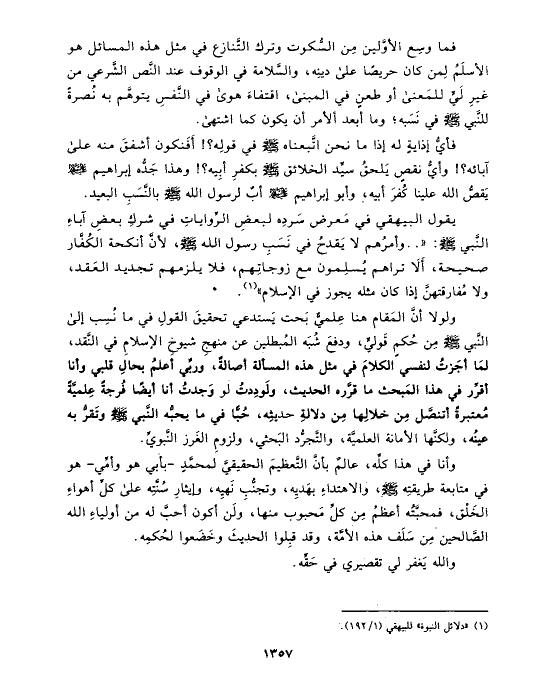 فما وسِع الأوَّلين مِن السُّكوت وترك التَّنازع في مثل هذه المسائل هو
الأسلَمُ لِمن كان حريصًا علىٰ دينِه، والسَّلامة في الوقوف عند النَّص الشَّرعي من
غيرِ لَيٍّ للمَعنىٰ أو طعنٍ في المبنىٰ، اقتفاءَ هوىٰ في النَّفس يتوهَّم به نُصرةً
للنَّبي ﷺ في نَسَبه؛ وما أبعد الأمر أن يكون كما اشتهىٰ.
فأيُّ إذايةٍ له إذا ما نحن اتَّبعناه ﷺ في قولِه؟! أفَنكون أشفقَ منه علىٰ
آبائه؟! وأيُّ نقصٍ يَلحقُ سيِّد الخلائق ﷺ بكفرِ أبِيه؟! وهذا جَدُّه إبراهيم ﷺ
يَقصُّ الله علينا كُفرَ أبيه، وأبو إبراهيم ﷺ أبٌ لرسول الله ﷺ بالنَّسَبِ البعيد.
يقول البيهقي في مَعرض سَردِه لبعضِ الرِّوايات في شركِ بعضِ آباءِ
النَّبي ﷺ: «..وأمرُهم لا يَقدحُ في نَسَبِ رسول الله ﷺ، لأنَّ أنكحة الكُفَّار
صحيحة، ألَا تراهم يُسلِمون مع زوجاتِهم، فلا يلزمهم تجديد العَقد،
ولا مُفارقتهنَّ إذا كان مثله يجوز في الإسلام»(١).
ولولا أنَّ المَقام هنا عِلميٌّ بَحت يَستدعي تحقيقَ القولِ في ما نُسِب إلىٰ
النَّبي ﷺ مِن حُكمٍ قَوليٍّ، ودفعَ شُبَه المُبطلين عن منهجِ شيوخِ الإسلام في النَّقد،
لمَا أجَزتُ لنفسي الكلامَ في مثل هذه المسألة أصالةً، وربِّي أعلمُ بحالِ قلبي وأنا
أقرِّر في هذا المَبحث ما قرَّره الحديث، ولَودِدتُ لو وَجدتُ أنا أيضًا فُرجةً عِلميَّةً
مُعتبرةً أتنصَّل مِن خلالِها مِن دلالةِ حديثِه، حُبًّا في ما يحبُّه النَّبي ﷺ وتَقرُّ به
عينُه، ولكنَّها الأمانة العلميَّة، والتَّجرُّد البَحثي، ولزومِ الغَرز النَّبويِّ.
وأنا في هذا كلِّه، عالمٌ بأنَّ التَّعظيمَ الحقيقيَّ لمحمَّدٍ -بأبي هو وأمِّي- هو
في متابعة طريقتِه ﷺ، والاهتداءِ بهَديِه، وتجنُّبِ نَهيِه، وإيثارِ سُنَّتِه علىٰ كلِّ أهواءِ
الخَلْق، فمحبَّتُه أعظمُ مِن كلِّ مَحبوب منها، ولَن أكون أحبَّ له من أولياءِ الله
الصَّالحين مِن سَلَف هذه الأمَّة، وقد قبِلوا الحديثَ وخَضَعوا لحُكمِه.
والله يَغفر لي تقصيري في حَقِّه.
(١) «دلائل النبوة» للبيهقي (١/ ١٩٢).
١٣٥٧